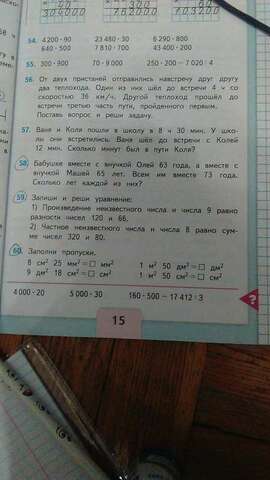 54. 4200·90 23480·30 6290·800
640·500 7810·700 43400·200
55. 300·900 70·9000 250·200−7020:4
56. От двух пристаней отправились навстречу друг другу
два теплохода. Один из них шёл до встречи 4 ч со
скоростью 36 км/ч. Другой теплоход прошёл до
встречи третью часть пути, пройденного первым.
Поставь вопрос и реши задачу.
57. Ваня и Коля пошли в школу в 8 ч 30 мин. У шко-
лы они встретились. Ваня шёл до встречи с Колей
12 мин. Сколько минут был в пути Коля?
58 Бабушке вместе с внучкой Олей 63 года, а вместе с
внучкой Машей 65 лет. Всем им вместе 73 года.
Сколько лет каждой из них?
59 Запиши и реши уравнение:
1) Произведение неизвестного числа и числа 9 равно
разности чисел 120 и 66.
2) Частное неизвестного числа и числа 8 равно сум-
ме чисел 320 и 80.
60. Заполни пропуски.
8 см² 25 мм²=□ мм² 1 м² 50 дм²=□ дм²
9 дм² 18 см²=□ см² 1 м² 50 см²=□ см²
4000·20 5000·30 160·500−17412:3
?
15